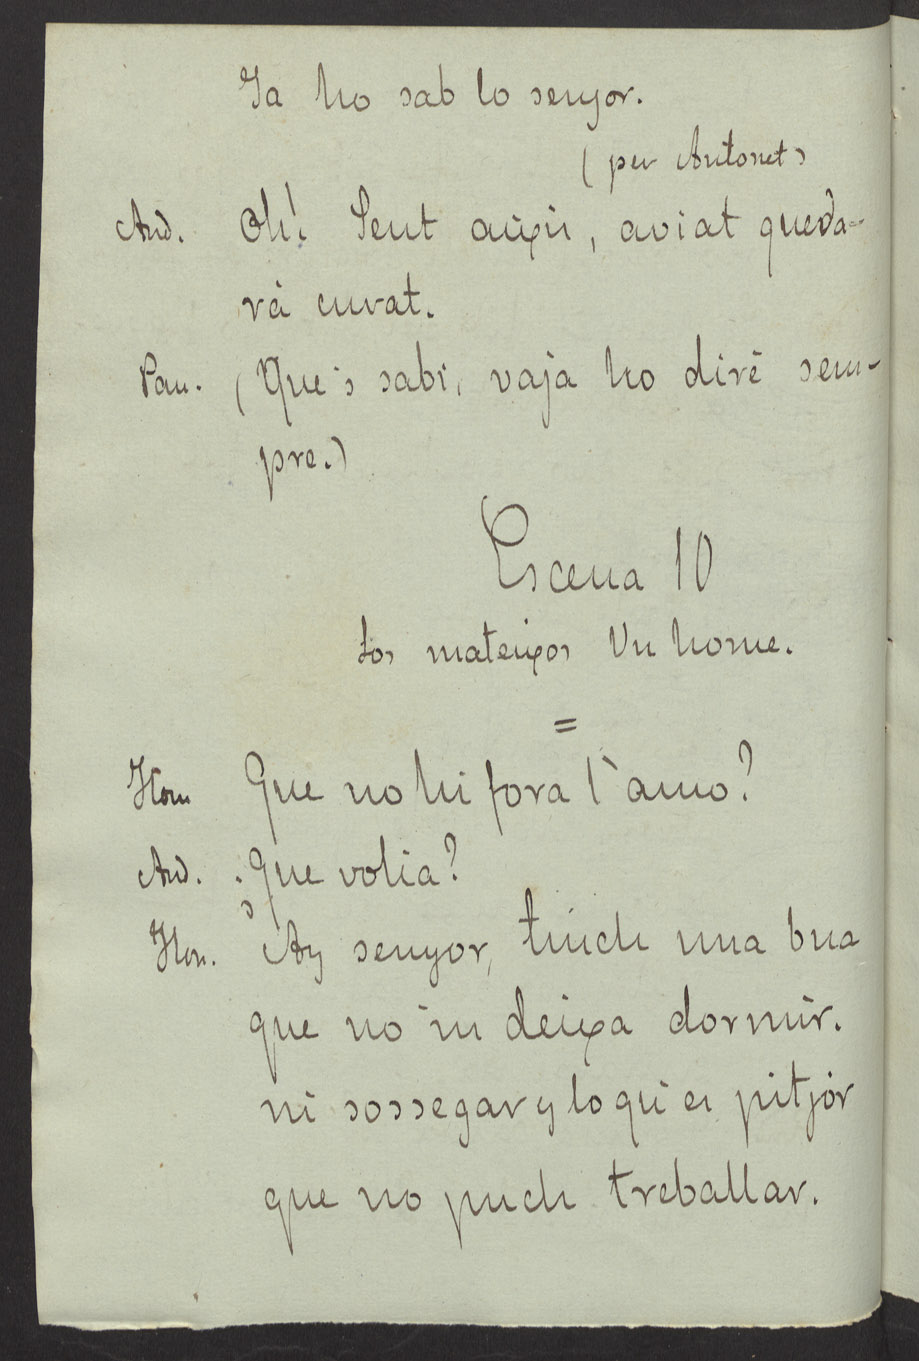 Ja ho sab lo senyor.
(per Antonet)
And. Oh! Sent aixís, aviat queda-
rá curat.
Pau. (Que's sabi, vaja ho diré sem-
pre.)
Escena 10
Los mateixos Un home.
=
Hom Que no hi fora l'amo?
And. Que volia?
Hom. Ay senyor, tinch una bua
que no'm deixa dormir.
ni sossegar y lo qu'es pitjor
que no puch treballar.